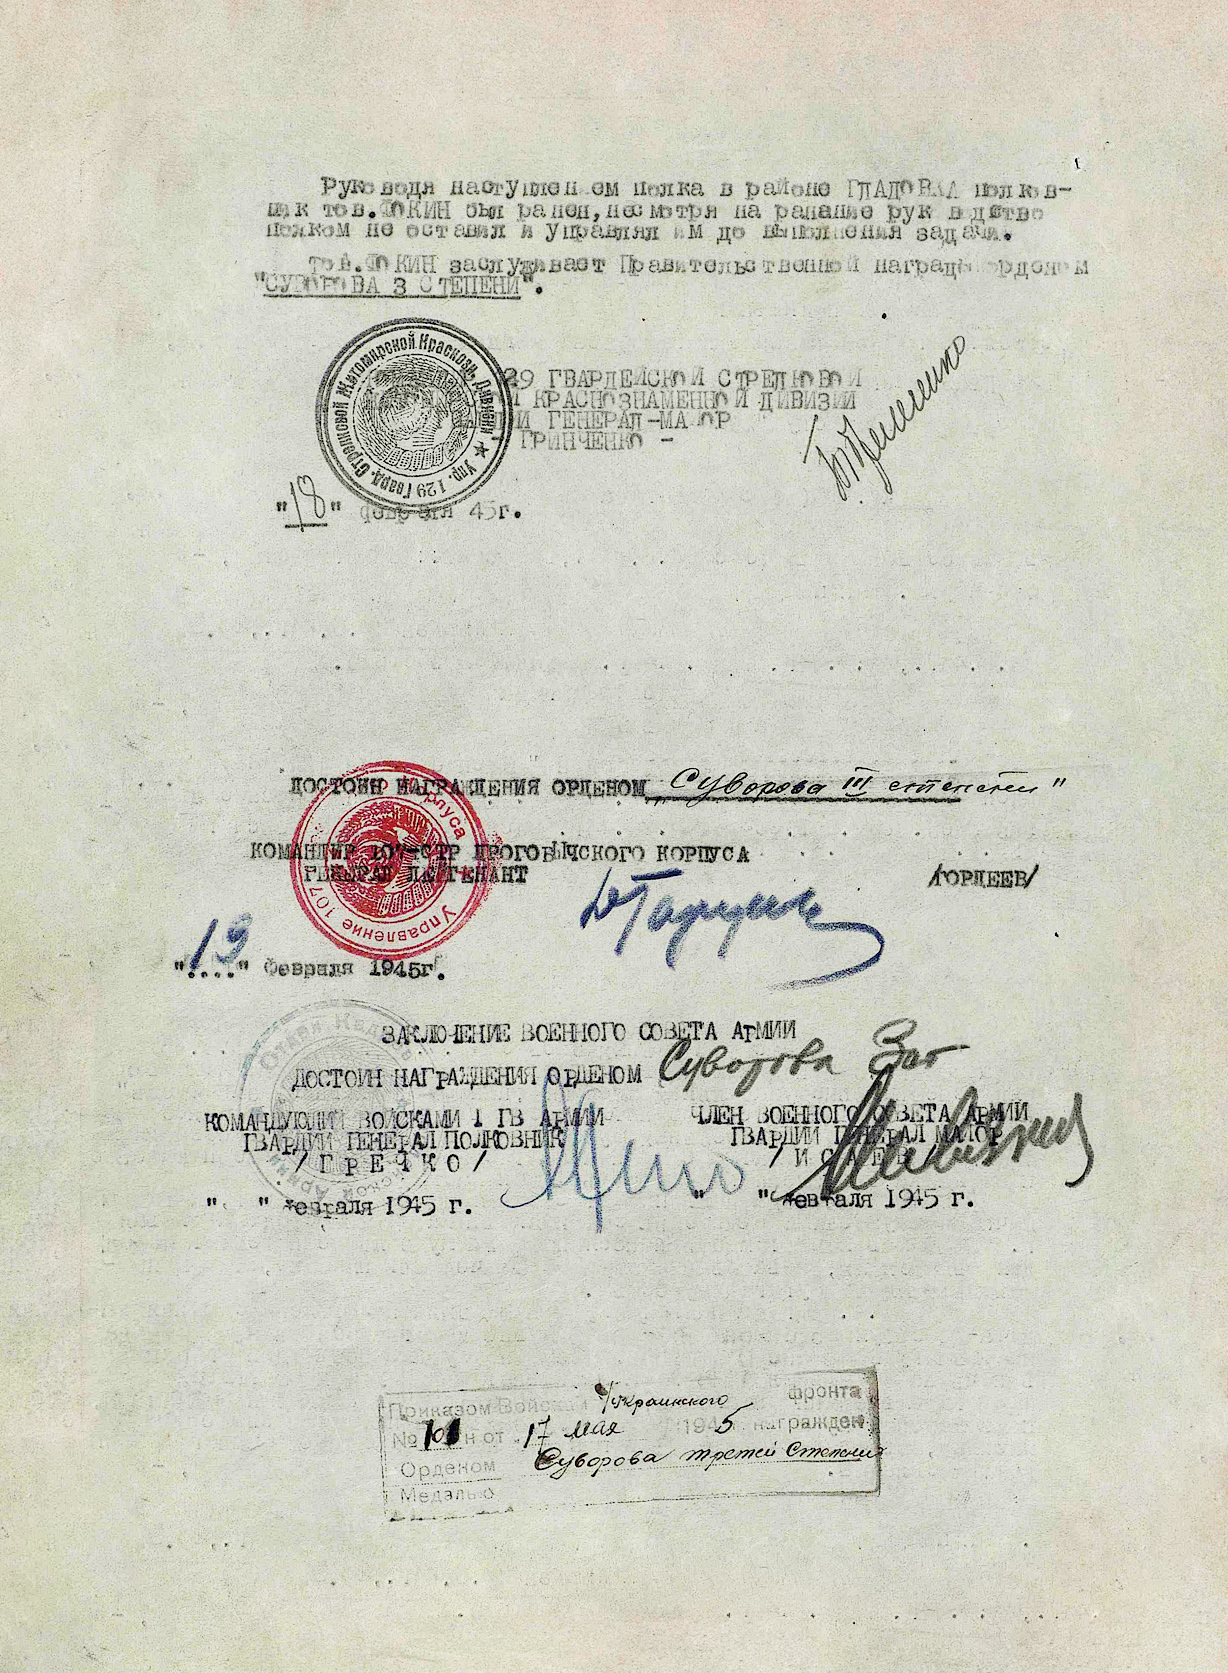 Руководя наступлением полка в районе ГЛАДОВКА полков-
ник тов.ФОКИН был ранен, несмотря на ранание руководство
полком не оставил и управлял им до выполнения задачи.
тов.ФОКИН заслуживает Правительственной награды орденом
"СУВОРОВА 3 СТЕПЕНИ".
29 ГВАРДЕЙСКОЙ СТРЕЛКОВОЙ
КРАСНОЗНАМЕННОЙ ДИВИЗИИ
ГЕНЕРАЛ-МАЙОР
ГРИНЧЕНКО -
Упр. 129 Гвард. Стрелковой Житомирской Краснозн. Дивизии
"18" февраля 45г.
ДОСТОИН НАГРАЖДЕНИЯ ОРДЕНОМ "Суворова III степени"
КОМАНДИР 107-СТР ДРОГОБЫЧСКОГО КОРПУСА
ГЕНЕРАЛ ЛЕЙТЕНАНТ /ГОРДЕЕВ/
Управление 107 корпуса
"19" Февраля 1945г.
ЗАКЛЮЧЕНИЕ ВОЕННОГО СОВЕТА АРМИИ
ДОСТОИН НАГРАЖДЕНИЯ ОРДЕНОМ Суворова 3 ст
КОМАНДУЮЩИЙ ВОЙСКАМИ 1 ГВ АРМИИ
ГВАРДИИ ГЕНЕРАЛ ПОЛКОВНИК
/ГРЕЧКО/
" " февраля 1945 г.
ЧЛЕН ВОЕННОГО СОВЕТА АРМИИ
ГВАРДИИ ГЕНЕРАЛ МАЙОР
/ИСАЕВ
" " февраля 1945 г.
Приказом Войскам 4 Украинского фронта
№ 101 н от 17 мая 1945 награжден
Орденом Суворова третей Степени
Медалью